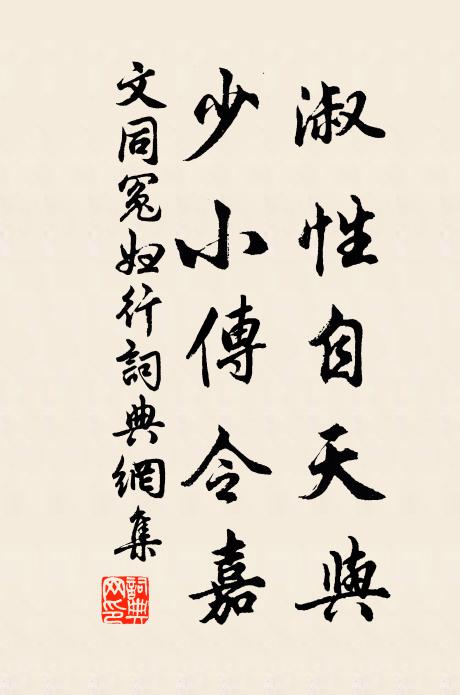 淑性自天與
少小傳令嘉
文同冤婦行詞典網集
詞典
网印